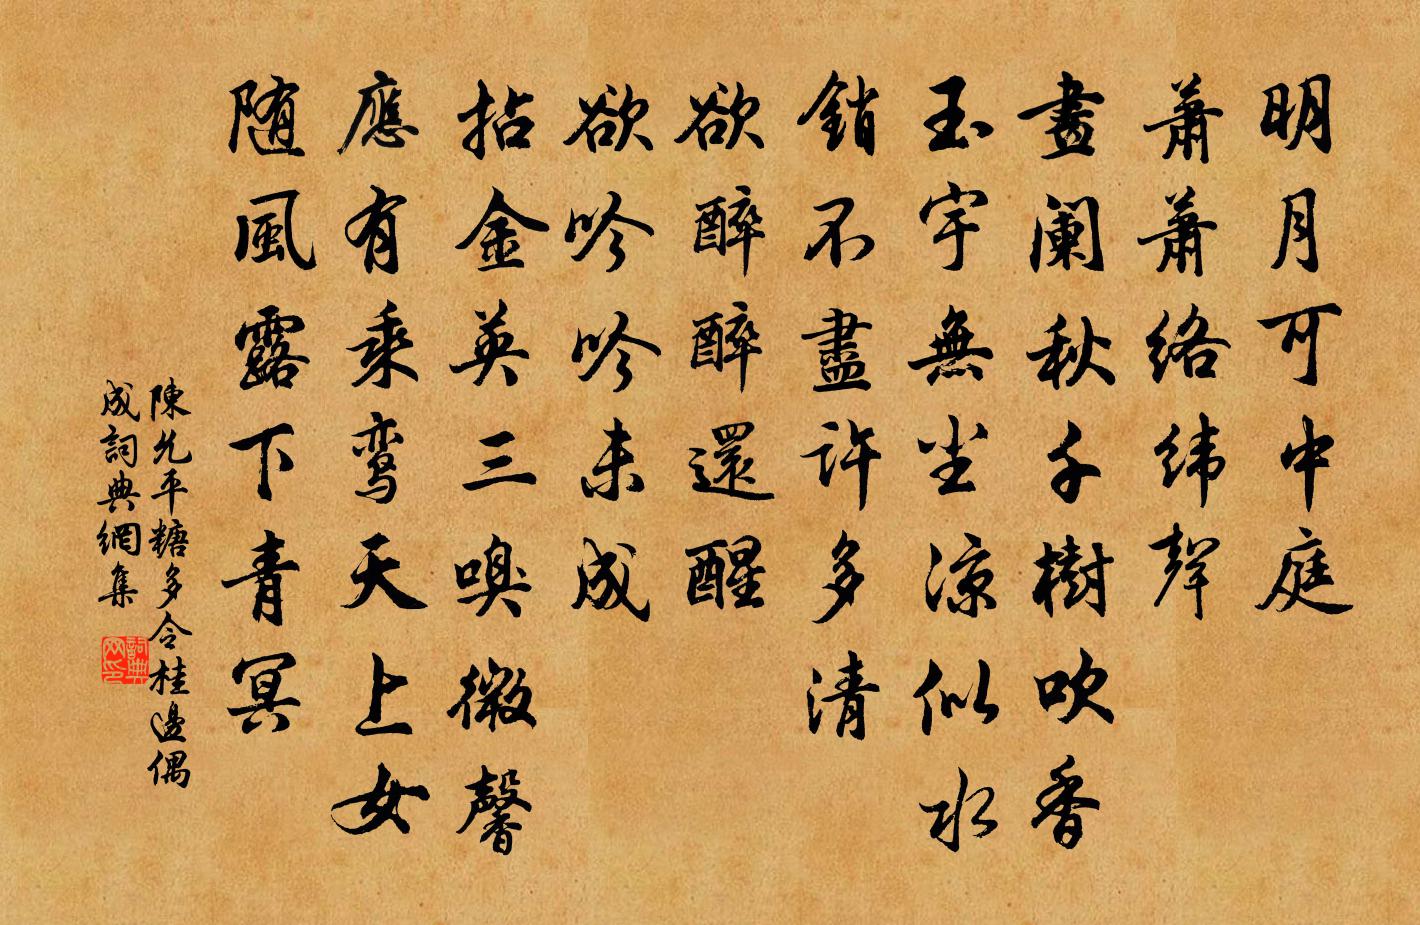 明月可中庭
蕭蕭絡緯聲
畫闌秋千樹吹香
玉宇無尘涼似水
銷不盡許多清
欲醉醉還醒
欲吟吟未成
拈金英三嗅微馨
應有乘鸾天上女
随風露下青冥
陳允平糖多令桂邊偶
成詞典網集
詞典
网印